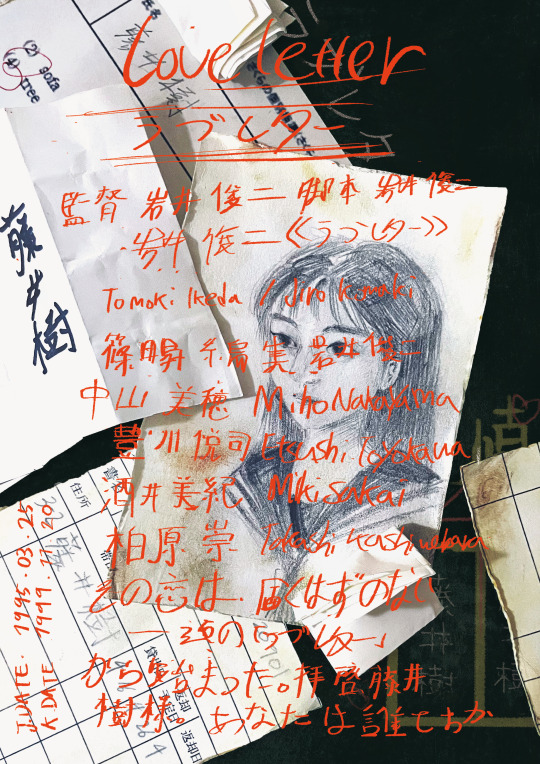 (2) sofa
(4) tree
氏名
Love letter
ラブレター
監督 岩井 俊二 脚本 岩井 俊二
岩井 俊二《ラブレター》
藤井樹
Tomoki Ikeda / Jiro Komaki
篠田昇 岩井俊二
中山 美穂 Miho Nakayama
豊川悦司 Etsushi Toyokawa
情
酒井美紀 Miki Sakai
住所
柏原 崇 Takashi Kashiwabara
藤井樹
J.DATE. 1995.03.25
K DATE 1999.11.20
その恋は、届くはずのない
一通のラブレター」
から始まった。拝啓藤井
樹様。あなたは誰ですか
藤井樹
樹
返却日